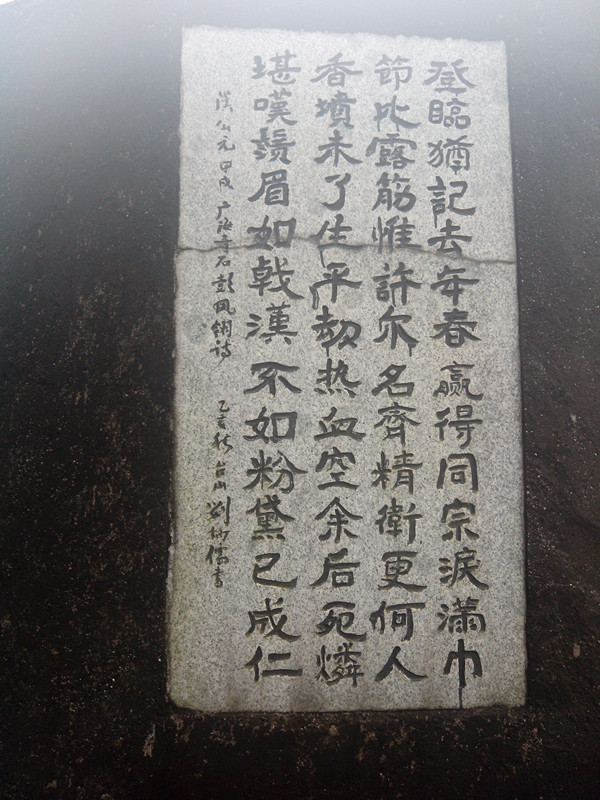 登臨猶記去年春赢得同宗淚满巾
節比露筋惟許尔名齊精衛更何人
香墳未了生平劫热血空余后死燐
堪嘆鬚眉如戟漢不如粉黛已成仁
漢公元甲戌广海奇石彭凤翎詩 乙亥秋台山刘 儒書